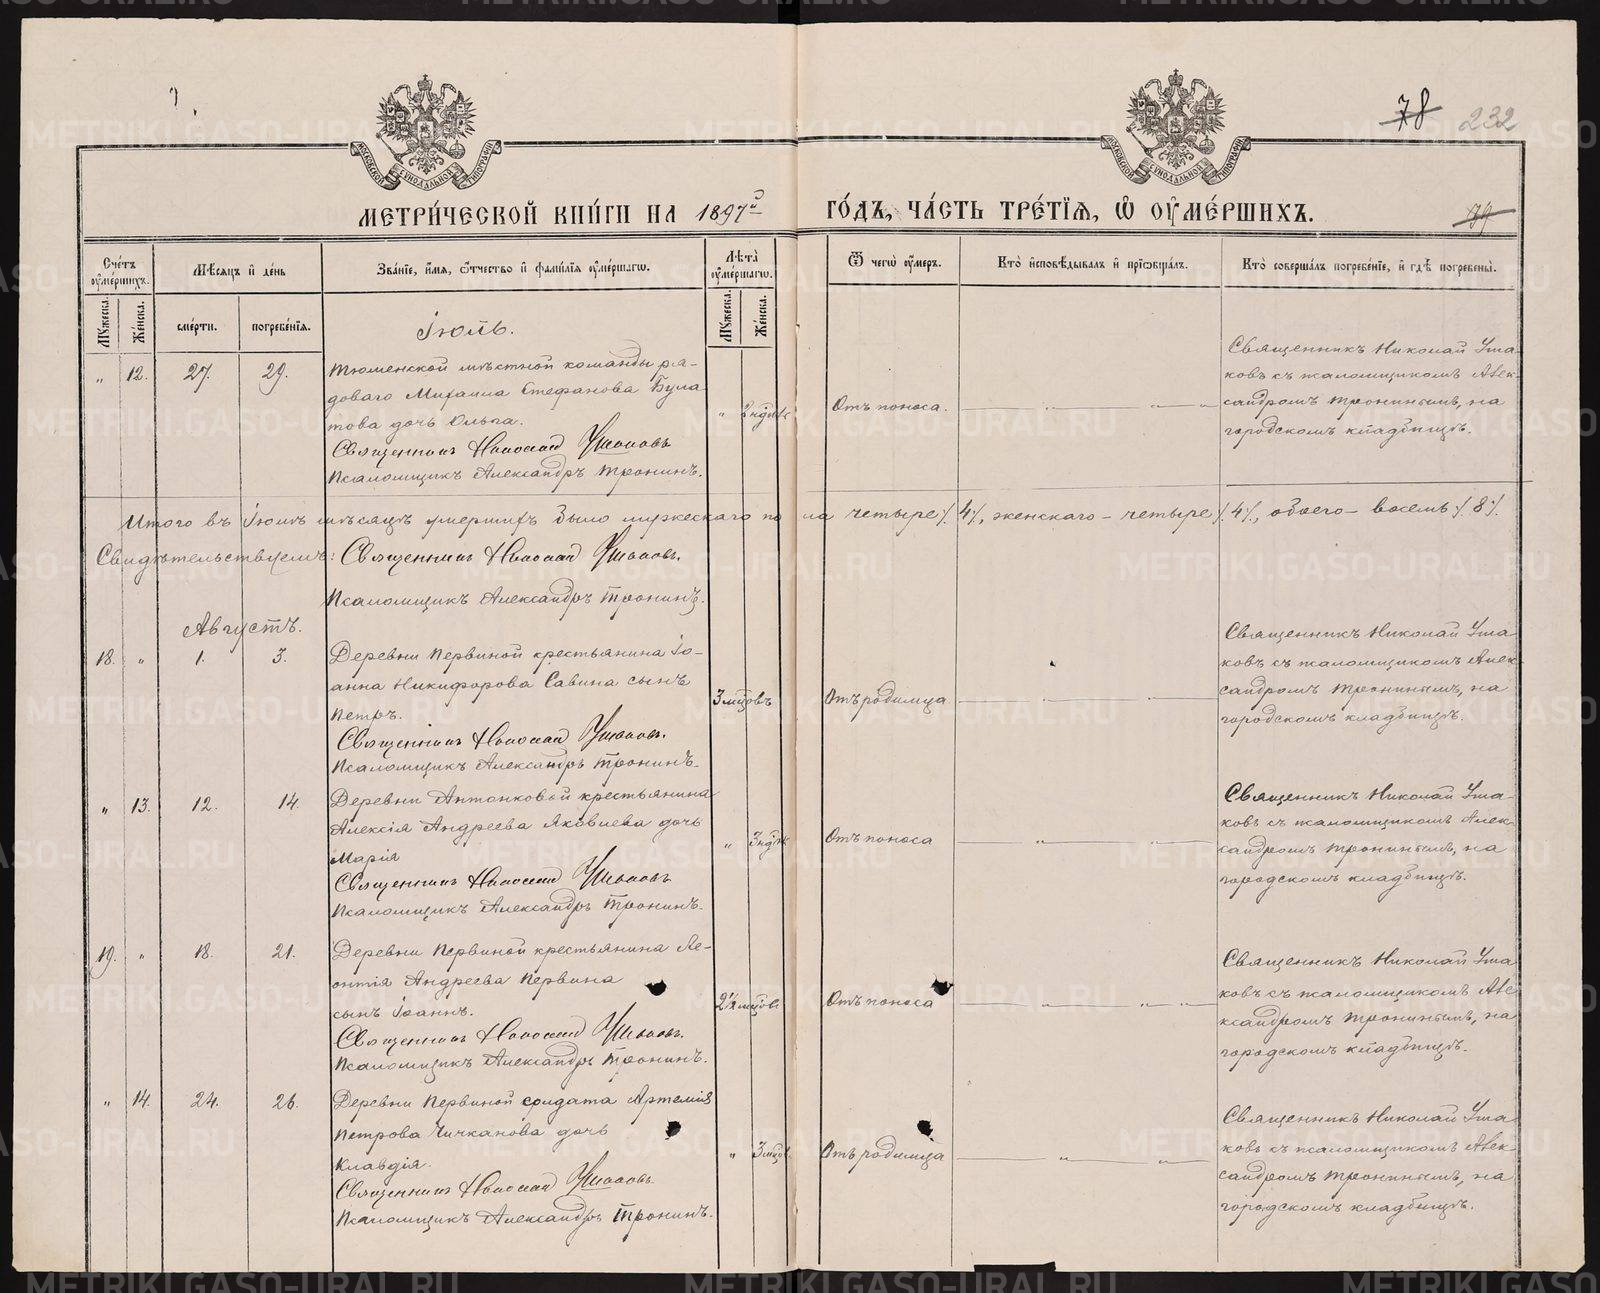 78 232
МЕТРИ́ЧЕСКОЙ КНИ́ГИ НА 1897й ГО́ДЪ, ЧА́СТЬ ТРЕ́ТІѦ, Ѽ ОУМЕ́РШИХЪ.
79
Сче́тъ оуме́ршихъ.
Мѣ́сѧцъ и де́нь
Зва́нїе, и́мѧ, ѻ́тчество и фами́лїѧ оуме́ршагѡ.
Лѣ́та оуме́ршагѡ.
Ѿ чегѡ̀ оу́меръ.
Кто̀ исповѣ́дывалъ и прїѡбща́лъ.
Кто̀ соверша́лъ погребе́нїе, и гдѣ̀ погребены̀.
Мꙋ́жеска.
Же́нска.
сме́рти.
погребе́нїѧ.
Мꙋ́жеска.
Же́нска.
Іюль.
„ 12. 27. 29. Тюменской мѣстной команды ря-
доваго Михаила Стефанова Була-
това дочь Ольга.
Священникъ Николай Ушаковъ
Псаломщикъ Александръ Тронинъ.
„ 2 ндѣль
Отъ поноса.
Священникъ Николай Уша-
ковъ съ псаломщикомъ Алек-
сандромъ Трониным, на
городскомъ кладбищѣ.
Итого въ Іюлѣ мѣсяцѣ умершихъ было мужескаго пола четыре /. 4 /., женскаго – четыре /. 4 /., обоего – восемь /. 8 /.
Свидѣтельствуемъ: Священникъ Николай Ушаковъ.
Псаломщикъ Александръ Тронинъ.
Августъ.
18. „ 1. 3. Деревни Первиной крестьянина Іо-
анна Никифорова Савина сынъ
Петръ.
Священникъ Николай Ушаковъ.
Псаломщикъ Александръ Тронинъ.
3 мцовъ
Отъ родимца
Священникъ Николай Уша-
ковъ съ псаломщикомъ Алек-
сандромъ Трониным, на
городскомъ кладбищѣ.
„ 13. 12. 14. Деревни Антонковой крестьянина
Алексія Андреева Яковлева дочь
Марія
Священникъ Николай Ушаковъ
Псаломщикъ Александръ Тронинъ.
„ 3 ндѣл
Отъ поноса
Священникъ Николай Уша-
ковъ съ псаломщикомъ Алек-
сандромъ Трониным, на
городскомъ кладбищѣ.
19. „ 18. 21. Деревни Первиной крестьянина Ле-
онтія Андреева Первина
сынъ Іоаннъ.
Священникъ Николай Ушаковъ.
Псаломщикъ Александръ Тронинъ.
2½ мцовъ
Отъ поноса
Священникъ Николай Уша-
ковъ съ псаломщикомъ Але-
ксандромъ Трониным, на
городскомъ кладбищѣ.
„ 14. 24. 26. Деревни Первиной солдата Артемія
Петрова Чичканова дочь
Клавдія.
Священникъ Николай Ушаковъ.
Псаломщикъ Александръ Тронинъ.
„ 3 мцов.
Отъ родимца
Священникъ Николай Уша-
ковъ съ псаломщикомъ Алек-
сандромъ Трониным, на
городскомъ кладбищѣ.
METRIKI.GASO-URAL.RU